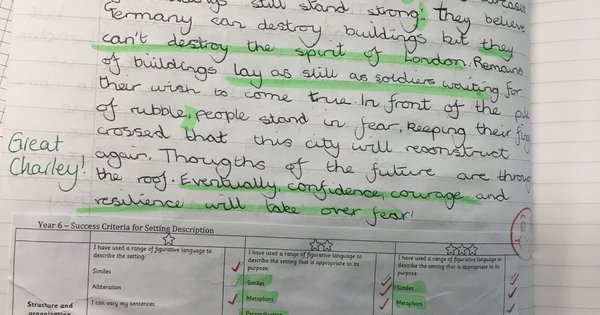 still stand strong. They believe
Germany can destroy buildings but they
can't destroy the spirit of London. Remains
of buildings lay as still as soldiers waiting for
their wish to come true. In front of the pile
of rubble, people stand in fear, keeping their
crossed that this city will reconstruct
again. Thougths of the future are through
the roof. Eventually, confidence, courage and
resilience will take over fear!
Great
Charley!
Year 6 – Success Criteria for Setting Description
I have used a range of figurative language to
describe the setting:
Similes
Alliteration
I can vary my sentences.
I have used a range of figurative language to
describe the setting that is appropriate to its
purpose:
Similes
Metaphors
Personification
I have used a range of figurative language to
describe the setting that is appropriate to its
purpose:
Similes
Metaphors
Structure and
organisation